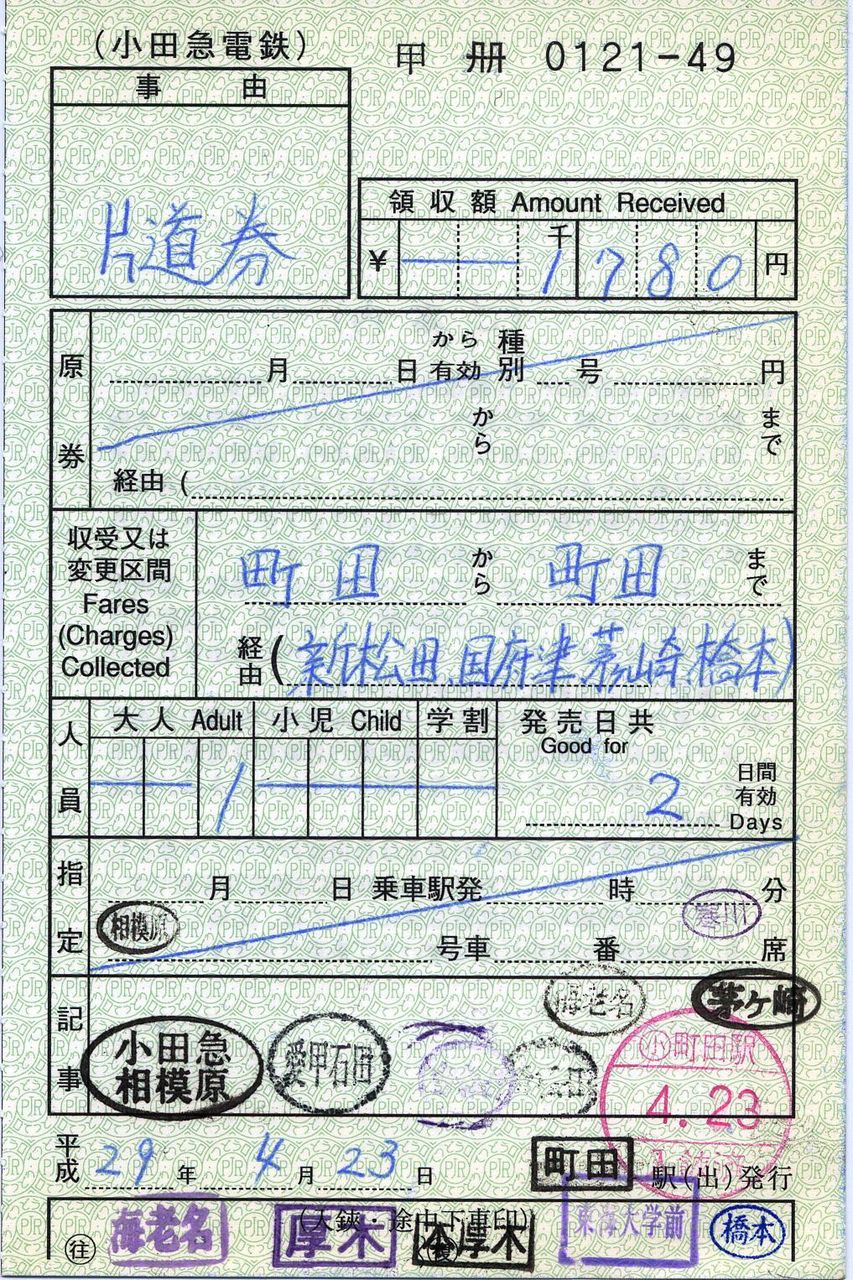 (小田急電鉄)
甲 冊 0121-49
事 由
片道券
領収額 Amount Received
千
¥ 1 7 8 0 円
原券
月 日 から有効 種別 号 円
から まで
経由 (
収受又は
変更区間
Fares
(Charges)
Collected
町田 から 町田 まで
経由 (新松田、国府津、茅ヶ崎、橋本)
人員
大人 Adult 小児 Child 学割
1
発売日共
Good for
2 日間有効 Days
指定
月 日 乗車駅発 時 分
相模原 寒川
号車 番 席
記事
海老名 茅ヶ崎
小田急
相模原
愛甲石田
小町田駅
4.23
平成 29 年 4 月 23 日 町田 駅(出)発行
(入鋏・途中下車印)
往 海老名 厚木 本厚木 東海大学前 橋本